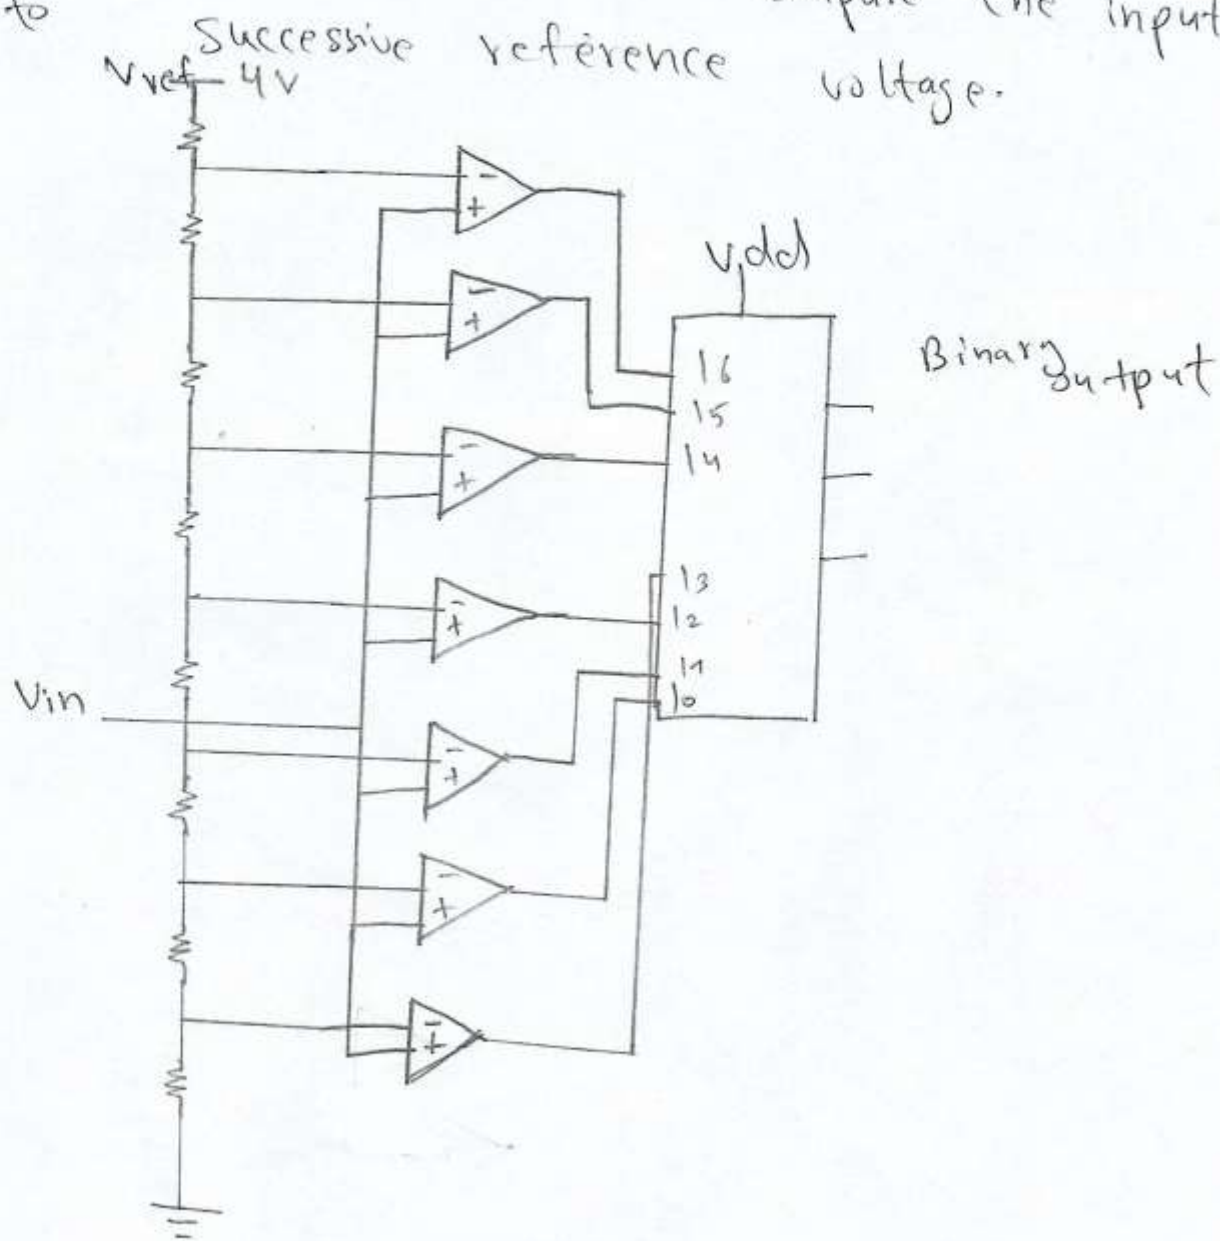 to the input
Successive reference voltage.
Vref 4V
-
+
Vdd
-
+
Binary output
16
15
14
-
+
13
12
-
+
11
10
Vin
-
+
-
+
-
+